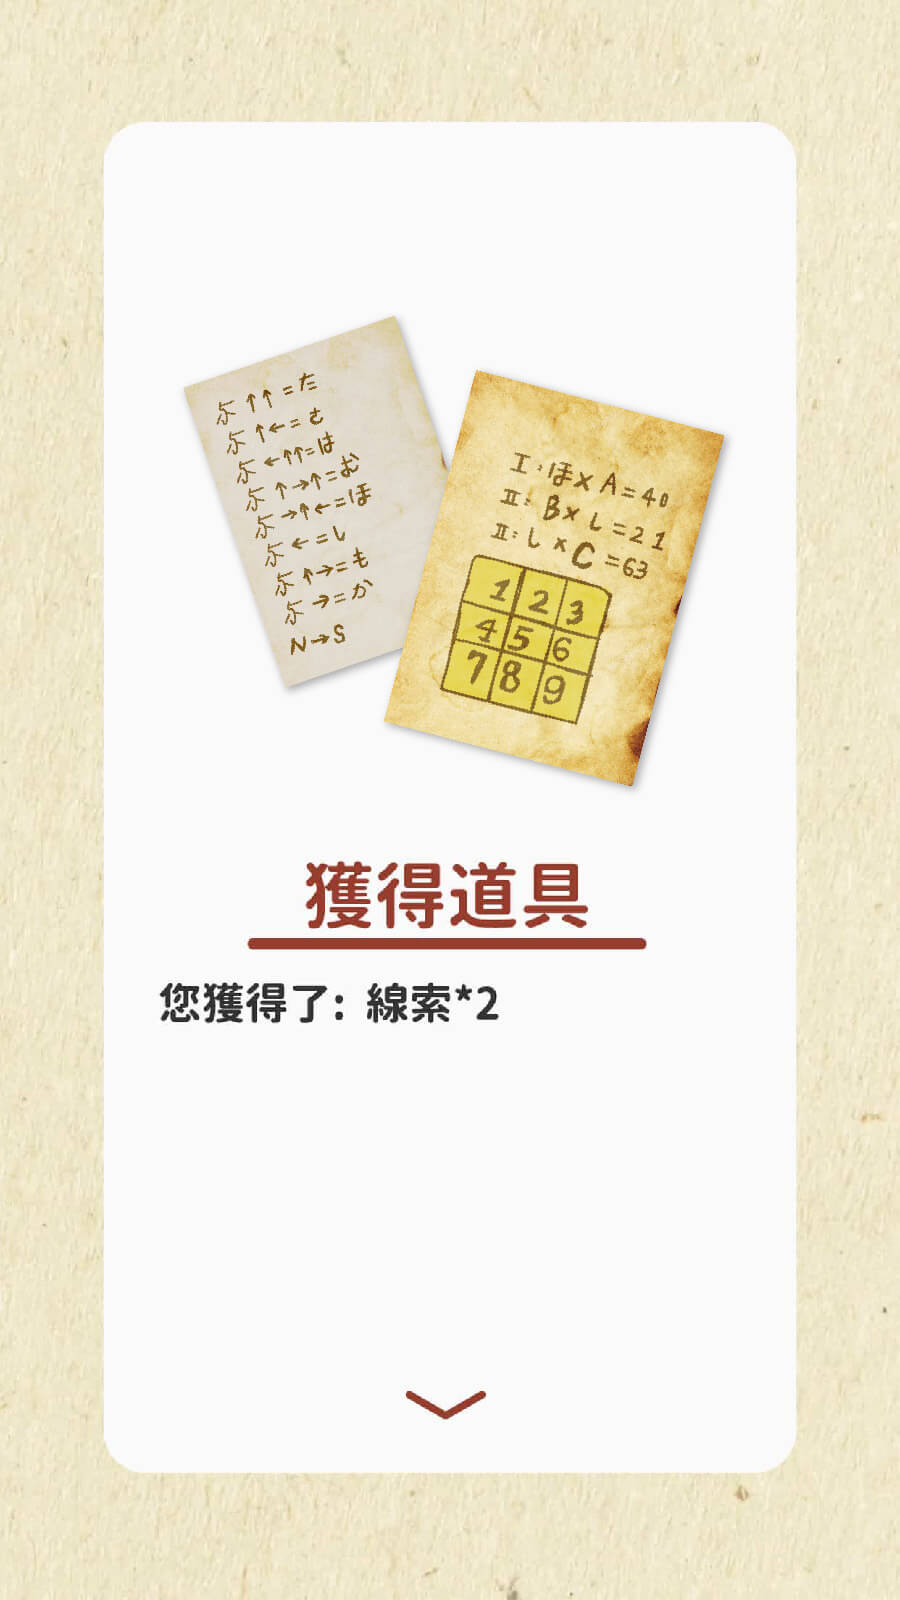 ↑↑=た
↑←=さ
←↑↑=は
↑→↑=む
→↑←=ほ
←=し
↑→=も
→=か
N→S
I:ほ×A=40
II:B×し=21
II:し×C=63
1 2 3
4 5 6
7 8 9
獲得道具
您獲得了: 線索*2